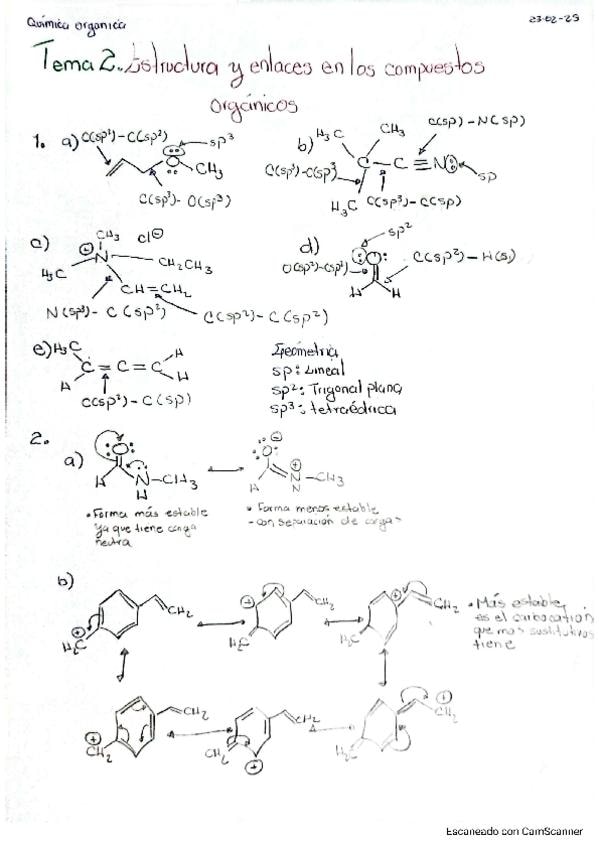 Química organica
23-02-25
Tema 2. Estructura y enlaces en los compuestos
orgánicos
1. a) C(sp²)-C(sp²)
sp³
CH₃
C(sp³)-O(sp³)
b) H₃C
CH₃
C(sp)-N(sp)
C(sp³)-C(sp³)
C-C≡N
sp
H₃C C(sp³)-C(sp)
c) CH₃ Cl⊖
N
H₃C
CH₂CH₃
CH=CH₂
N(sp³)-C(sp²)
C(sp²)-C(sp²)
d) sp²
O
O(sp²)-C(sp²)
C(sp²)-H(s)
H H
e) H₃C
C=C=C
H
H
H
C(sp²)-C(sp)
Geometría
sp: Lineal
sp²: Trigonal plana
sp³: tetraédrica
2.
a) O
H N-CH₃
H
O⊖
H N⊕-CH₃
• Forma más estable
ya que tiene carga
neutra
• Forma menos estable
- con separación de carga
b)
CH₂
H₂C
CH₂
H₂C
CH₂
H₂C
• Más estable,
es el carbocatión
que mas sustitutivos
tiene
CH₂
CH₂
CH₂
CH₂
CH₂
H₂C
Escaneado con CamScanner